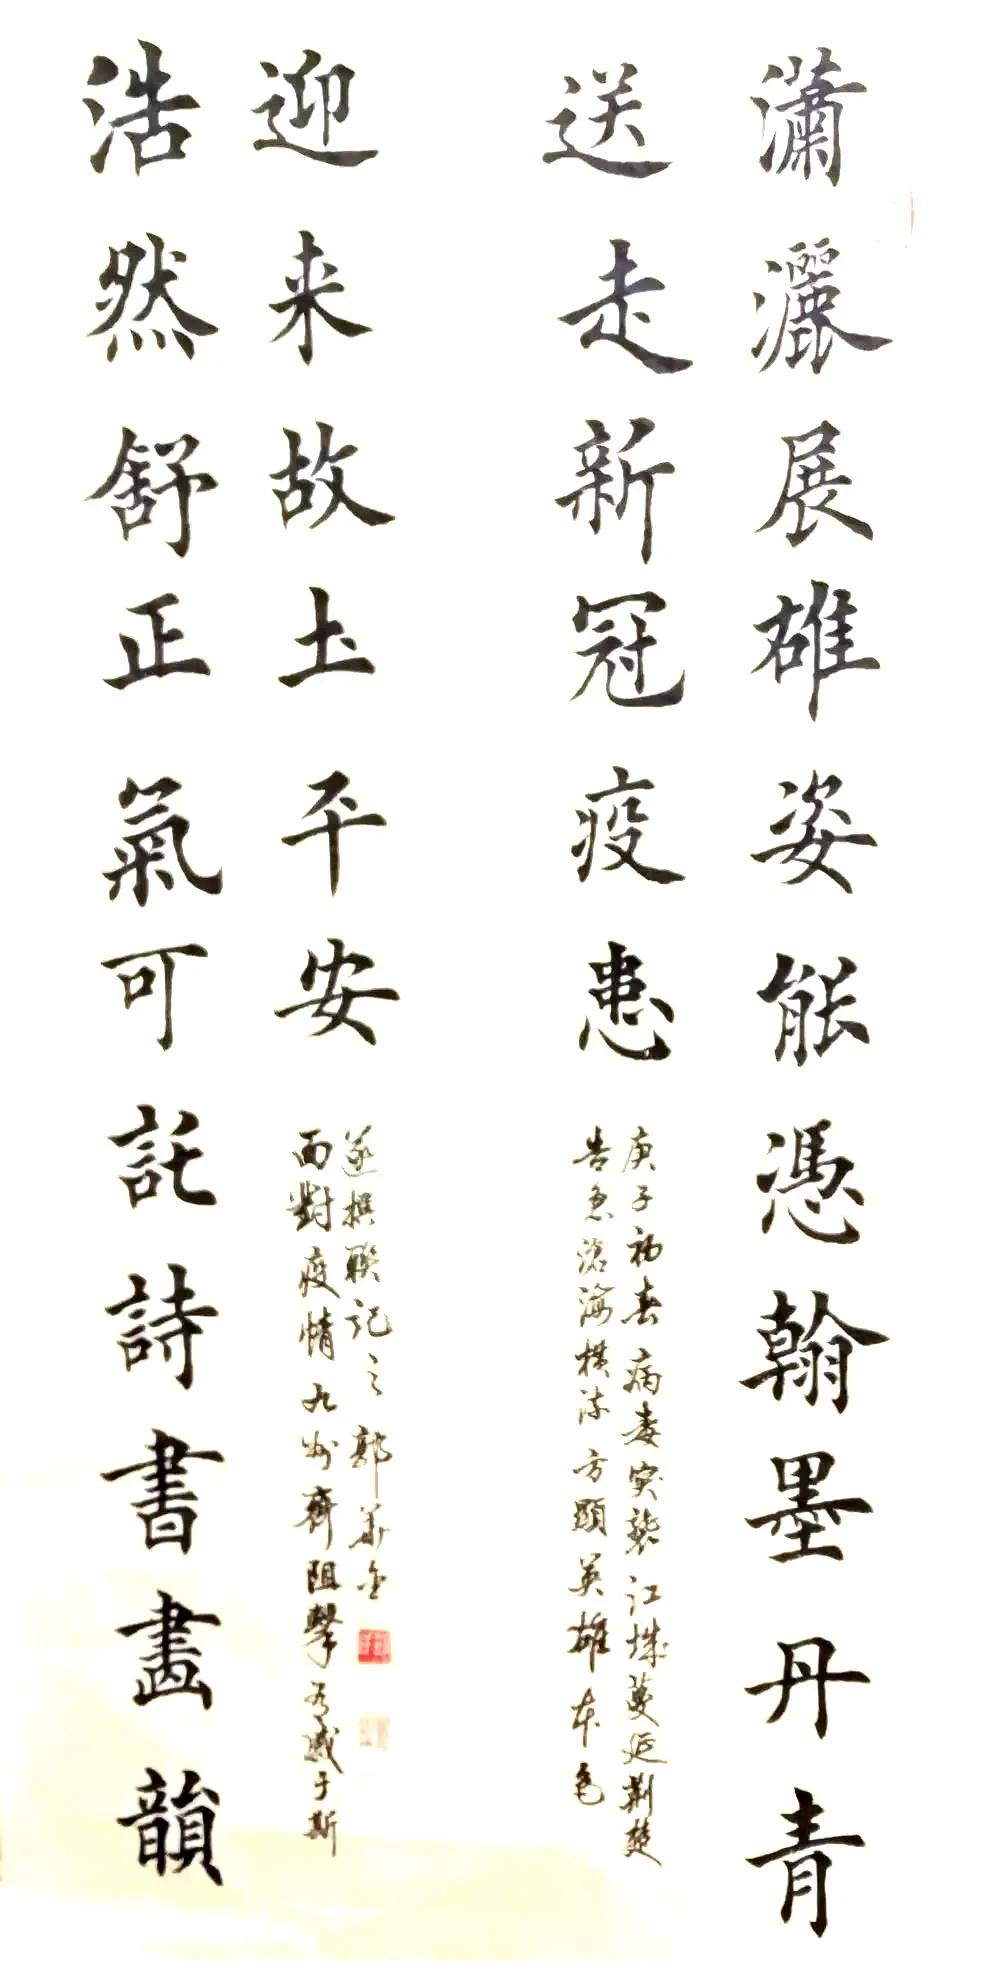 瀟灑展雄姿能憑翰墨丹青
送走新冠疫患
庚子初春病毒突襲江城蔓延荊楚
告急滄海橫流方顯英雄本色
浩然舒正氣可託詩書畫韻
迎来故土平安
面對疫情九州齊阻擊有感于斯
遂撰聯記之郭